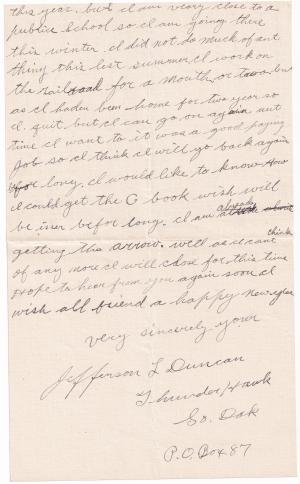 this year. but I am veary close to a
public School so I am going there
this winter I did not do much of ant
thing this last summer. I work on
the railroad for a mouth or two. but
as I haden been home for two year so
I quit. but I can go on again ant
time I want to it was a good paying
Job so I think I will go back again
befor long. I would like to know how
I could get the G book wish will
be user befor long. I am already
getting the arrow. well as I cant think
of any more I will close for this time
Hope to hear from you again soon I
wish all friend a happy New year
very sincerly your
Jefferson L Duncan
Thunder Hawk
So. Dak
P.O. Box 87